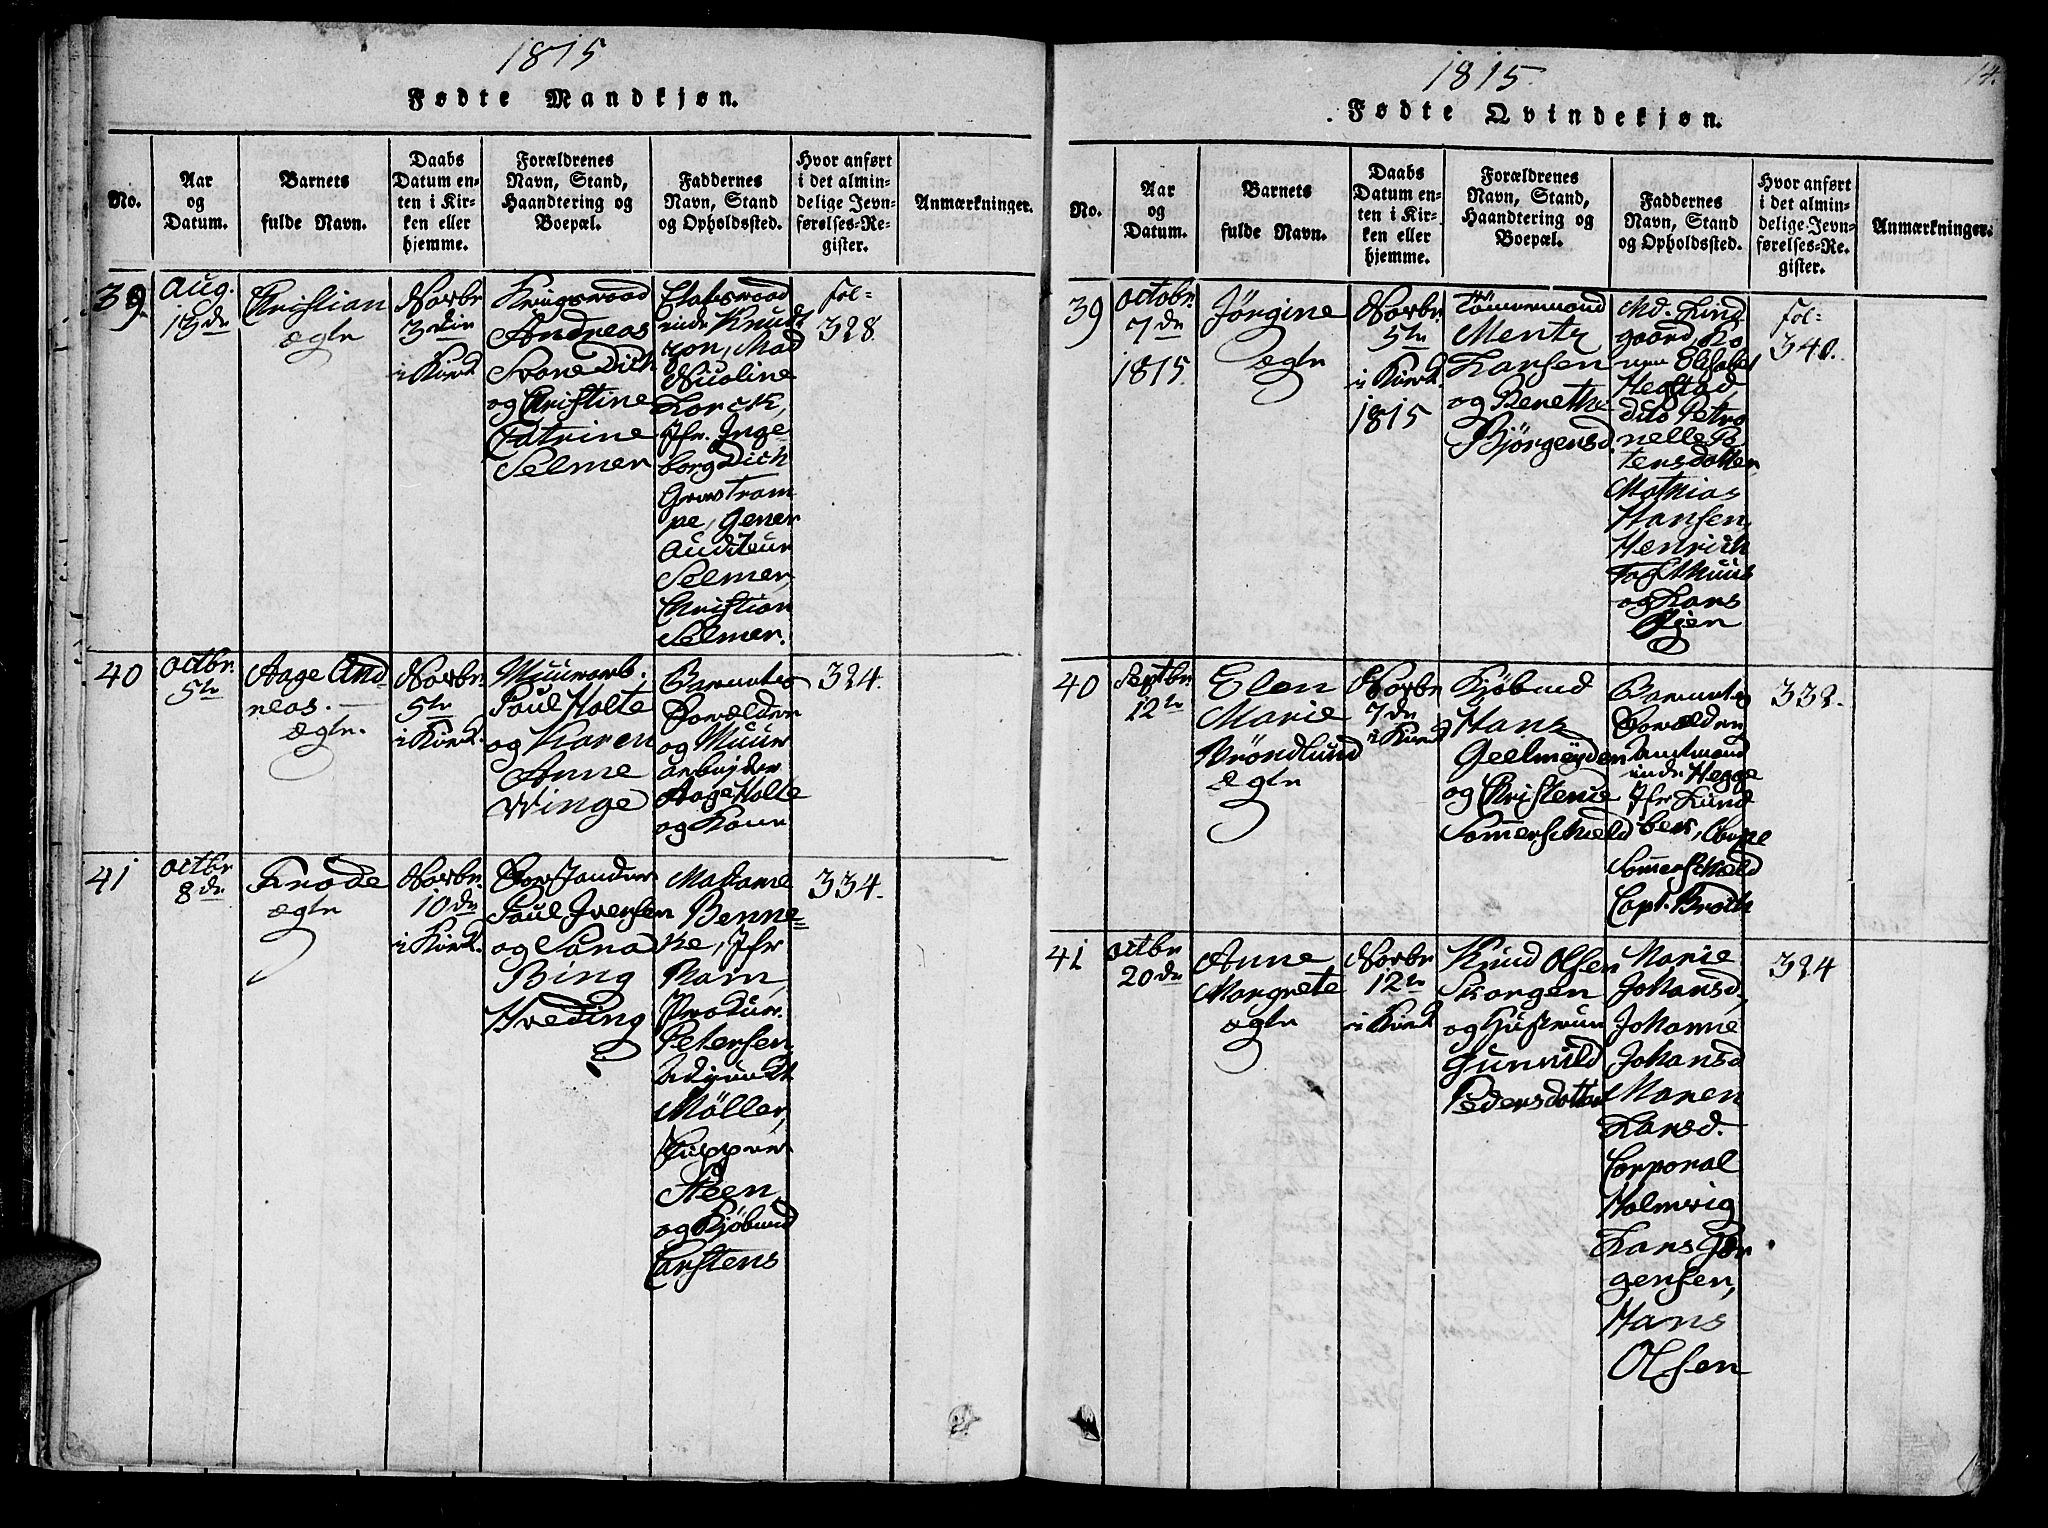 1815
Fødte Mandkjøn.
No.
Aar
og
Datum.
Barnets
fulde Navn.
Daabs
Datum en-
ten i Kir-
ken eller
hjemme.
Forældrenes
Navn, Stand,
Haandtering og
Boepæl.
Faddernes
Navn, Stand
og Opholdssted.
Hvor anført
i det almin-
delige Jevn-
førelses-Re-
gister.
Anmærkninger.
39
Aug.
13de
Christian
ægte
Novbr
3die
i Kirk
Krigsraad
Andreas
Svane Dick
og Christine
Catrine
Selmer
Etatsraad
inde Knudt
zon, Mad
Nicoline
Lorck,
Jfr. Inge-
borg Dick
Grev Tram
pe, Gener
Auditeur
Selmer,
Christian
Selmer.
fol-
328.
40
Octbr.
5te
Aage And
reas.
ægte.
Novbr.
5te
i Kirk.
Muurarb.
Paul Holte
og Karen
Anne
Winge
Barnets
Forældre
og Muur
arbejder
Aage Holte
og Kone
324.
41
Octbr
8de
Frode
ægte
Novbr.
10de
i Kirk.
Forstander
Paul Iversen
og Sara
Bing
Hveding
Madame
Benne-
ke, Jfr
Prodür.
Petersen,
Adjunkt
Möller,
Steen,
og Kjöbmd
Carstens
334.
1815
14.
Fødte Qvindekjøn.
No.
Aar
og
Datum.
Barnets
fulde Navn.
Daabs
Datum en-
ten i Kir-
ken eller
hjemme.
Forældrenes
Navn, Stand,
Haandtering og
Boepæl.
Faddernes
Navn, Stand
og Opholdssted.
Hvor anført
i det almin-
delige Jevn-
førelses-Re-
gister.
Anmærkninger.
39
Octobr.
7de
1815.
Jörgine
ægte
Novbr.
5te
i Kirk.
1815
Tömermand
Mentz
Larsen
og Berethe
Björgensd.
Md. Lind
gaard, Ko
nen Elisabet
Hegstad
dito Petro
nelle Pe
tersdotter,
Mathias
Hansen
Henrich
og Lars
Öjen
fol-
340.
40
Septbr.
12te
Elen
Marie
Bröndlund
ægte
Novbr
7de
i Kirk
Kjöbmd
Hans
Geelmeyden
og Christene
Somerschield
Barnets
Forældre
Amtmand
inde Hegge
Jfr Lund
Somerschield
Capt. Brock
332.
41
Octbr
20de
Anne
Margrete
ægte
Novbr
12te
i Kirk
Knud Olsen
Skorgen
og Hustrue
Gunnild
Pedersdotter
Marie
Johansd,
Johanne
Johansd
Maren
Larsd.
Corporal
Holmvig
Lars Jör
gensen,
Hans
Olsen
324